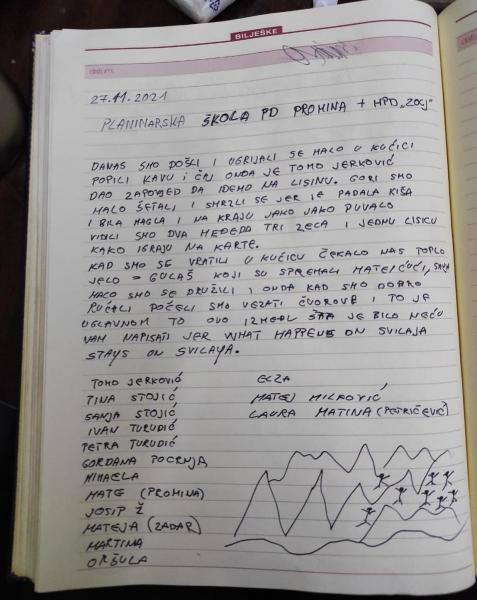 BILJEŠKE
datum:
27.11.2021
PLANINARSKA ŠKOLA PD PROMINA + HPD „ZOEJ"
DANAS SMO DOŠLI I UGRIJALI SE MALO U KUĆICI
POPILI KAVU I ČAJ ONDA JE TOMO JERKOVIĆ
DAO ZAPOVJED DA IDEMO NA LISINU. GORI SMO
MALO ŠETALI I SMRZLI SE JER JE PADALA KIŠA
I BILA MAGLA I NA KRAJU JAKO JAKO PUVALO
VIDILI SMO DVA MEDEDA TRI ZECA I JEDNU LISICU
KAKO IGRAJU NA KARTE.
KAD SMO SE VRATILI U KUĆICU ČEKALO NAS TOPLO
JELO = GULAŠ KOJI SU SPREMALI MATEJ ĆUĆI,
MALO SMO SE DRUŽILI I ONDA KAD SMO DOBRO
RUČALI POČELI SMO VEZATI ČVOROVE I TO JE
UGLAVNOM TO OVO IZMEĐU ŠTA JE BILO NEĆU
VAM NAPISATI JER WHAT HAPPENS ON SVILAJA
STAYS ON SVILAYA.
TOMO JERKOVIĆ
TINA STOJIĆ
SANJA STOJIĆ
IVAN TURUDIĆ
PETRA TURUDIĆ
GORDANA POCRNJA
MIHAELA
MATE (PROMINA)
JOSIP Ž
MATEJA (ZADAR)
MARTINA
ORŠULA
ELZA
MATEJ MILKOVIĆ
LAURA MATINA (PETRIČEVIĆ)